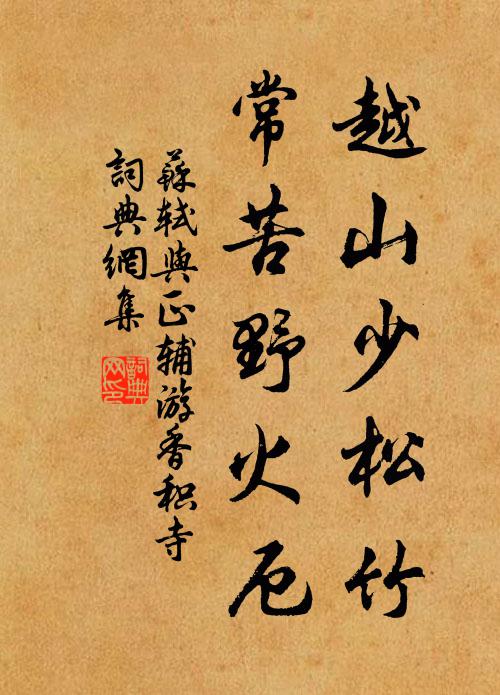 越山少松竹
常苦野火厄
蘇軾與正輔游香积寺
詞典網集
詞典
网印